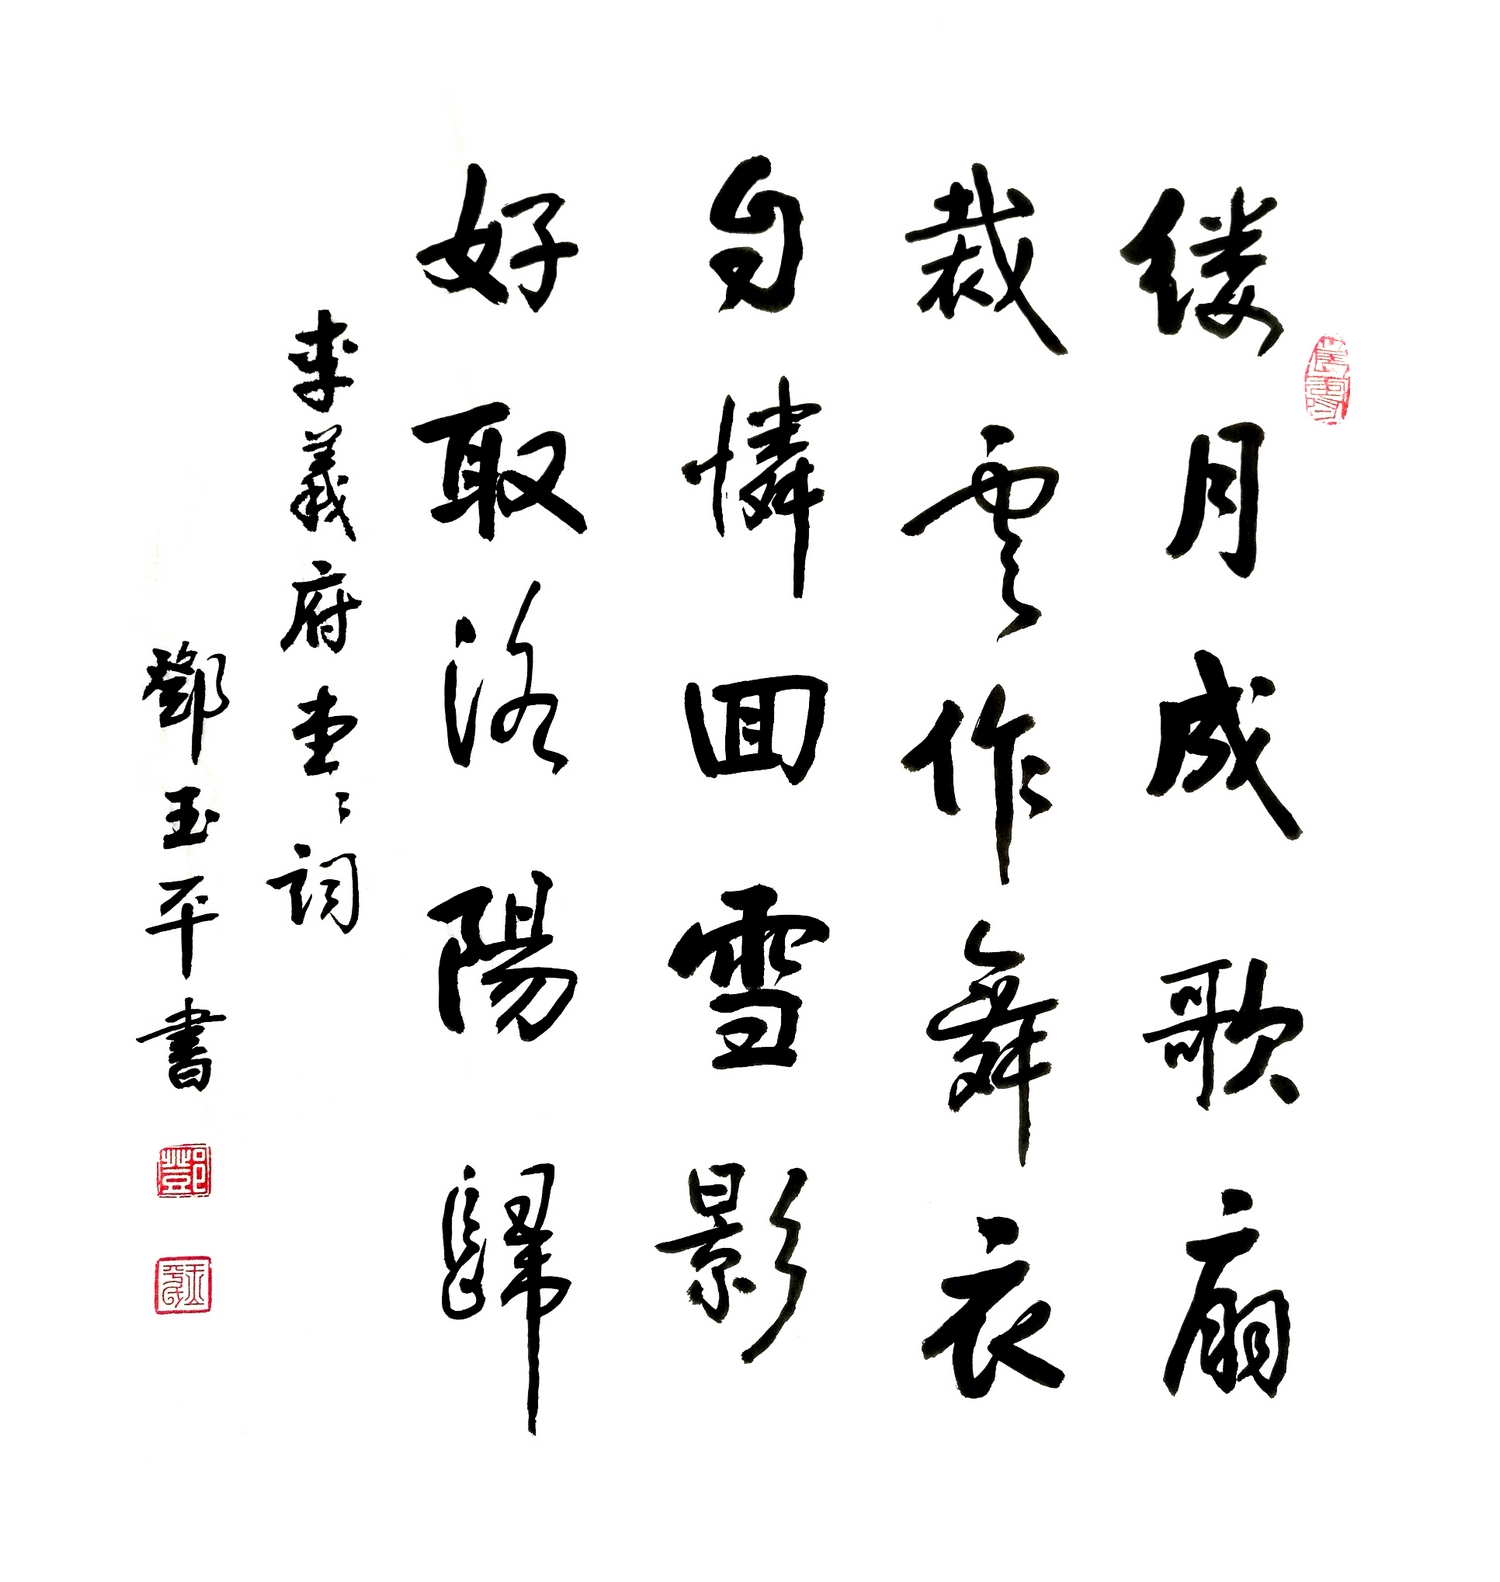 缕月成歌扇
裁雲作舞衣
自憐回雪影
好取洛陽歸
李義府堂堂詞
鄧玉平書